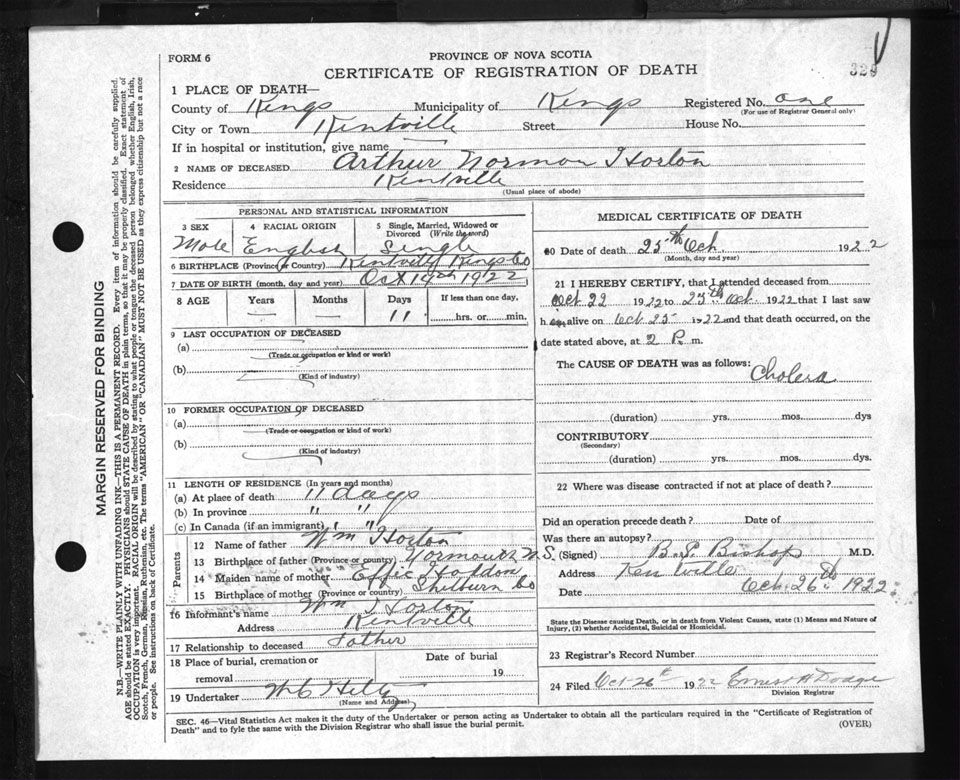 FORM 6
PROVINCE OF NOVA SCOTIA
CERTIFICATE OF REGISTRATION OF DEATH
329
1 PLACE OF DEATH—
County of Kings Municipality of Kings Registered No. one
(For use of Registrar General only)
City or Town Kentville Street House No.
If in hospital or institution, give name
2 NAME OF DECEASED Arthur Norman Horton
Residence Kentville
(Usual place of abode)
PERSONAL AND STATISTICAL INFORMATION
3 SEX 4 RACIAL ORIGIN 5 Single, Married, Widowed or Divorced (Write the word)
Male English Single
6 BIRTHPLACE (Province or Country) Kentville Kings Co
7 DATE OF BIRTH (month, day and year) Oct 14th 1922
8 AGE Years Months Days If less than one day,
— — 11 hrs. or min.
9 LAST OCCUPATION OF DECEASED
(a)
(Trade or occupation or kind or work)
(b)
(Kind of industry)
10 FORMER OCCUPATION OF DECEASED
(a)
(Trade or occupation or kind or work)
(b)
(Kind of industry)
11 LENGTH OF RESIDENCE (In years and months)
(a) At place of death 11 days
(b) In province " "
(c) In Canada (if an immigrant) " "
Parents
12 Name of father Wm Horton
13 Birthplace of father (Province or country) Yarmouth N.S.
14 Maiden name of mother Effie
15 Birthplace of mother (Province or country) Shelburn Co
16 Informant's name Wm Horton
Address Kentville
17 Relationship to deceased Father
18 Place of burial, cremation or removal Date of burial
19
19 Undertaker
(Name and Address)
MEDICAL CERTIFICATE OF DEATH
20 Date of death 25th Oct 1922
(Month, day and year)
21 I HEREBY CERTIFY, that I attended deceased from
Oct 22 1922 to 25th Oct 1922 that I last saw
h alive on Oct 25 1922 and that death occurred, on the
date stated above, at 2 P. m.
The CAUSE OF DEATH was as follows:
Cholera
(duration) yrs. mos. dys
CONTRIBUTORY
(Secondary)
(duration) yrs. mos. dys.
22 Where was disease contracted if not at place of death?
Did an operation precede death? Date of
Was there an autopsy?
(Signed) B.S. Bishop M.D.
Address Kentville
Date Oct. 26th 1922
State the Disease causing Death, or in death from Violent Causes, state (1) Means and Nature of
Injury, (2) whether Accidental, Suicidal or Homicidal.
23 Registrar's Record Number
24 Filed Oct 26th 1922 Ernest H Dodge
Division Registrar
SEC. 46—Vital Statistics Act makes it the duty of the Undertaker or person acting as Undertaker to obtain all the particulars required in the "Certificate of Registration of
Death" and to fyle the same with the Division Registrar who shall issue the burial permit. (OVER)
MARGIN RESERVED FOR BINDING
N.B.—WRITE PLAINLY WITH UNFADING INK—THIS IS A PERMANENT RECORD. Every item of information should be carefully supplied.
AGE should be stated EXACTLY. PHYSICIANS should STATE CAUSE OF DEATH in plain terms, so that it may be properly classified. Exact statement of
OCCUPATION is very important. RACIAL ORIGIN will be described by stating to what people or tongue the deceased person belonged whether English, Irish,
Scotch, French, German, Russian, Ruthenian, etc. The terms "AMERICAN" OR "CANADIAN" MUST NOT BE USED as they express citizenship but not a race
or people. See instructions on back of Certificate.